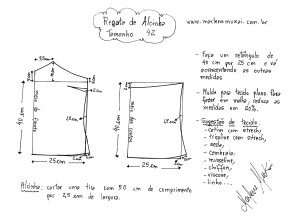 Regata de Alcinha
Tamanho 42
www.marlenemukai.com.br
- Faça um retângulo de
40 cm por 25 cm e vá
acrescentando as outras
medidas
- Molde para tecido plano. Para
fazer em malha, reduza as
medidas em 20%.
- Sugestões de tecido:
- cetim com strech,
- tricoline com strech,
- seda,
- cambraia,
- musseline,
- chiffon,
- viscose,
- linho...
40 cm
meio da frente
25 cm
40 cm
25 cm
Alcinha: cortar uma tira com 50 cm de comprimento
por 2,5 cm de largura.